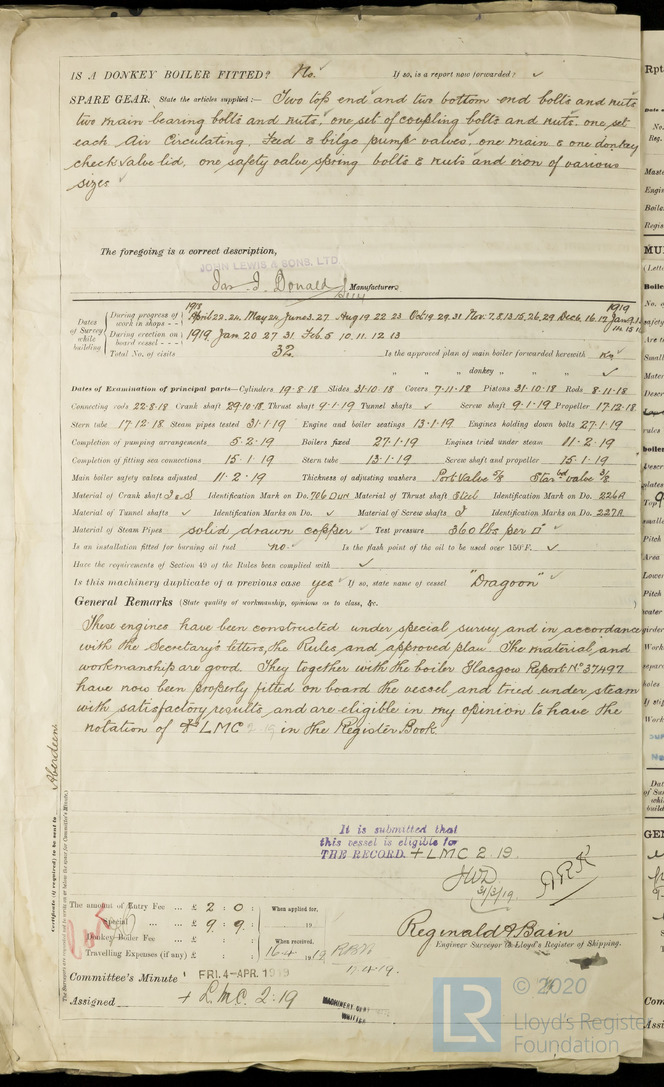 IS A DONKEY BOILER FITTED? No. If so, is a report now forwarded?
SPARE GEAR. State the articles supplied:— Two top end and two bottom end bolts and nuts
two main bearing bolts and nuts, one set of coupling bolts and nuts. one set
each Air Circulating, Feed & bilge pump valves, one main & one donkey
check valve lid, one safety valve spring bolts & nuts and iron of various
sizes
The foregoing is a correct description,
JOHN LEWIS & SONS, LTD
Donald Manufacturer
Dates of Survey while building
1918 1919
During progress of work in shops - - April 22. 24. May 24, June 3. 27. Aug 19. 22 23 Oct 19. 29. 31 Nov. 7. 8. 13. 15. 26. 29 Dec 6. 16. 17. Jan
During erection on board vessel - - - 1919 Jan 20 27 31. Feb. 5 10. 11. 12 13
Total No. of visits 32 Is the approved plan of main boiler forwarded herewith
" " " donkey " "
Dates of Examination of principal parts—Cylinders 19·8·18 Slides 31·10·18 Covers 7·11·18 Pistons 31·10·18 Rods 8·11·18
Connecting rods 22·8·18 Crank shaft 29·10·18 Thrust shaft 9·1·19 Tunnel shafts Screw shaft 9·1·19 Propeller 17·12·18
Stern tube 17·12·18 Steam pipes tested 31·1·19 Engine and boiler seatings 13·1·19 Engines holding down bolts 27·1·19
Completion of pumping arrangements 5·2·19 Boilers fixed 27·1·19 Engines tried under steam 11·2·19
Completion of fitting sea connections 15·1·19 Stern tube 13·1·19 Screw shaft and propeller 15·1·19
Main boiler safety valves adjusted 11·2·19 Thickness of adjusting washers Port Valve 5/8 Starbd valve 3/8
Material of Crank shaft I & S Identification Mark on Do. 706 DWN Material of Thrust shaft Steel Identification Mark on Do. 226A
Material of Tunnel shafts Identification Marks on Do. Material of Screw shafts I Identification Marks on Do. 227A
Material of Steam Pipes solid drawn copper Test pressure 360 lbs per □"
Is an installation fitted for burning oil fuel no. Is the flash point of the oil to be used over 150°F.
Have the requirements of Section 49 of the Rules been complied with
Is this machinery duplicate of a previous case yes If so, state name of vessel "Dragoon"
General Remarks (State quality of workmanship, opinions as to class, &c.
These engines have been constructed under special survey and in accordance
with the Secretary's letters, the Rules, and approved plan. The material, and
workmanship are good. They together with the boiler Glasgow Report No 37497
have now been properly fitted on board the vessel and tried under steam
with satisfactory results, and are eligible in my opinion to have the
notation of + LMC 2·19 in the Register Book.
It is submitted that
this vessel is eligible for
THE RECORD. + LMC 2.19.
JWD
31/3/19
Certificate (if required) to be sent to Aberdeen.
The Surveyors are requested not to write on or below the space for Committee's Minute.
The amount of Entry Fee ... £ 2 : 0 :
Special ... £ 9 : 9 :
Donkey Boiler Fee ... £ : :
Travelling Expenses (if any) £ : :
When applied for,
19
When received,
16·4 1919
Reginald A Bain
Engineer Surveyor to Lloyd's Register of Shipping.
Committee's Minute FRI. 4-APR. 1919
Assigned + L.M.C. 2.19
MACHINERY CERT
WRITTEN
LR
© 2020
Lloyd's Register
Foundation